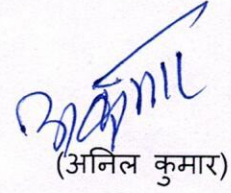 (अनिल कुमार)